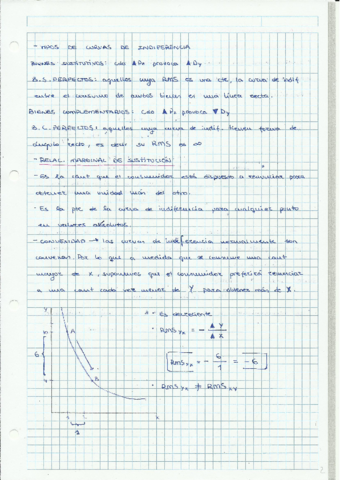 - TIPOS DE CURVAS DE INDIFERENCIA
BIENES SUSTITUTIVOS: Cdo ▲Px provoca ▲Dy
B.S. PERFECTOS: aquellos cuya RMS es una cte, la curva de indif
entre el consumo de ambos bienes es una línea recta.
BIENES COMPLEMENTARIOS: Cdo ▲Px provoca ▼Dy
B.C. PERFECTOS: aquellos cuya curva de indif. tienen forma de
ángulo recto, es decir su RMS es ∞
- RELAC. MARGINAL DE SUSTITUCIÓN
- Es la cant que el consumidor está dispuesto a renunciar para
obtener una unidad más del otro.
- Es la pte de la curva de indiferencia para cualquier punto
en valores absolutos.
- CONVEXIDAD → las curvas de indiferencia normalmente son
convexas. Por lo que a medida que se consume una cant
mayor de x, suponemos que el consumidor preferirá renunciar
a una cant cada vez menor de Y para obtener más de X.
Y
- Es decreciente
• RMS yx = - ▲Y / ▲X
A
6
RMS yx = - 6/1 = -6
B
• RMS yx ≠ RMS xy
x
1
2